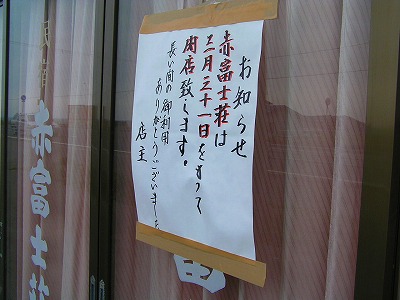 お知らせ
赤富士荘は
三月三十一日をもって
閉店致します。
長い間の御利用
ありがとうございました
店主
民宿
赤富士荘